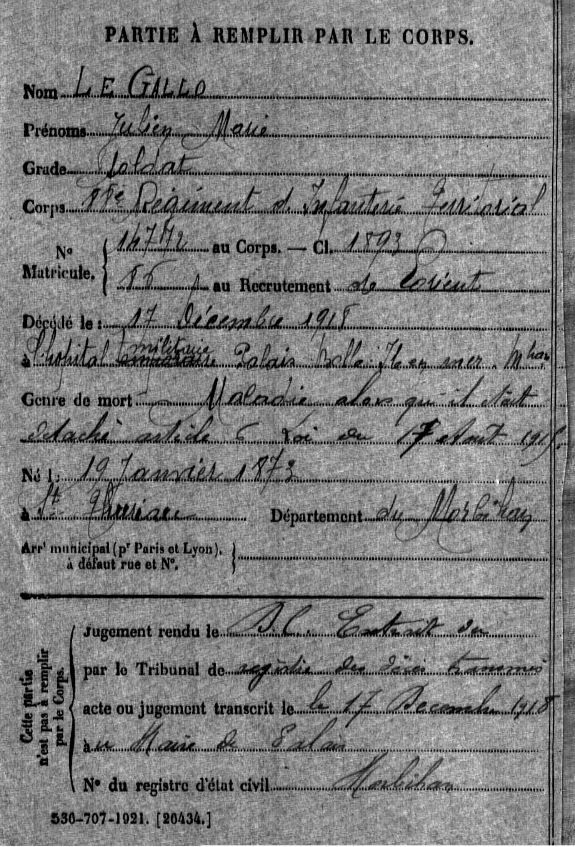 PARTIE À REMPLIR PAR LE CORPS.
Nom LE GALLO
Prénoms Julien Marie
Grade Soldat
Corps Régiment d'Infanterie Territorial
N° Matricule. 14772 au Corps. — Cl. 1893
au Recrutement de Lorient
Décédé le : 17 Décembre 1918
à l'hôpital militaire Palais Belle-Ile en mer. Mhan
Genre de mort Maladie alors qu'il était
détaché article 6 Loi du 17 Aout 1915
Né l : 19 Janvier 1873
à St Thuriau Département du Morbihan
Arrt municipal (pr Paris et Lyon),
à défaut rue et N°.
Cette partie n'est pas à remplir par le Corps.
Jugement rendu le Extrait du
par le Tribunal de registre des décès transmis
acte ou jugement transcrit le le 17 Decembre 1918
à Mairie de Palais
N° du registre d'état civil Morbihan
536-707-1921. [26434.]